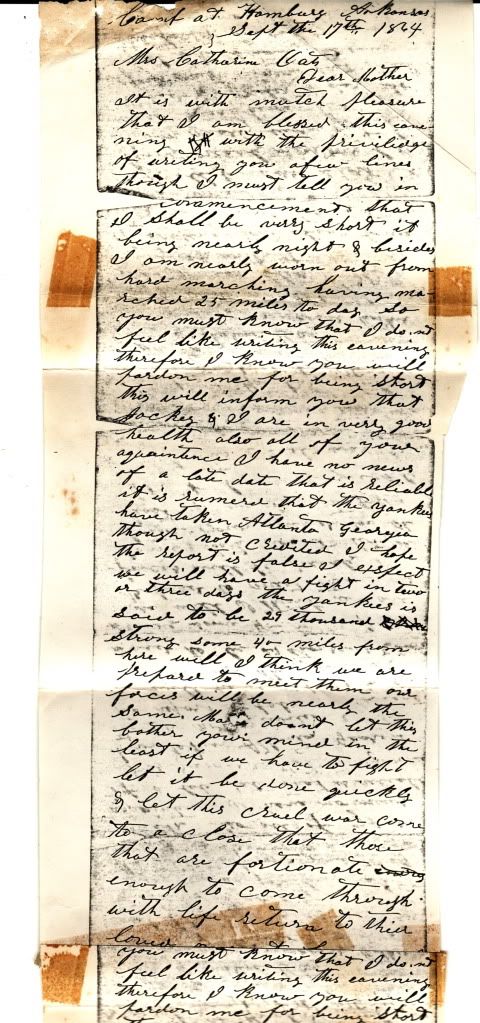 Camp at Hamburg Arkansas
Sept the 17th 1864
Mrs Catharine
Dear Mother
it is with mutch pleasure
that I am blessed this eave
ning with the priviledge
of writing you afew lines
though I must tell you in
commencement that
I shall be verry short it
being nearly night & besides
I am nearly worn out from
hard marching having ma
rched 25 miles to day so
you must know that I do not
feel like writing this eavening
therefore I know you will
pardon me for being short
this will inform you that
Jackey & I are in verry good
health also all of your
aquaintence I have no news
of a late date that is reliable
it is rumerd that the yankees
have taken Atlanta Georgia
though not credited I hope
the report is false I exspect
we will have a fight in two
or three days the yankees is
said to be 29 thousand
strong some 40 miles from
here will I think we are
prepard to meet them our
forces will be nearly the
same Ma dont let this
bother your mind in the
least if we have to fight
let it be done quickly
& let this cruel war come
to a close that those
that are fortionate
enough to come through
with life return to thier
loved
you must know that I do not
feel like writing this eavening
therefore I know you will
pardon me for being short